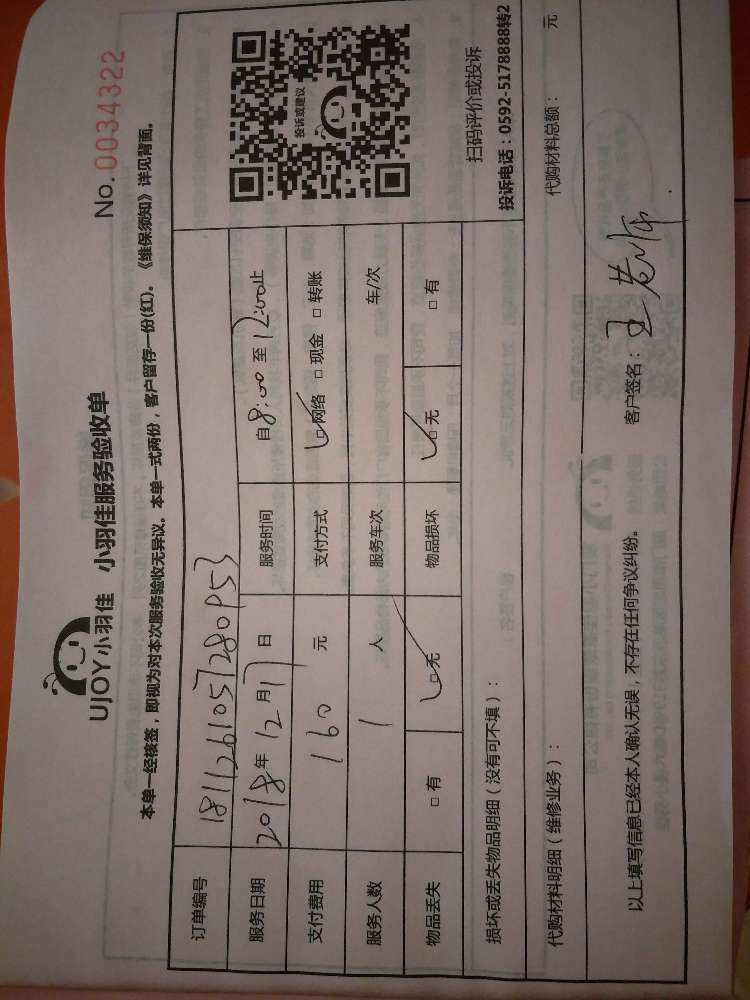 UJOY小羽佳 小羽佳服务验收单
No. 0034322
本单一经核签，即视为对本次服务验收无异议。本单一式两份，客户留存一份(红)。《维保须知》详见背面。
订单编号 181126105728
服务日期 2018年12月17日 服务时间 自8:00至12:00止
支付费用 160 元 支付方式 ☑网络 □现金 □转账
服务人数 1 人 服务车次 车/次
物品丢失 □有 ☑无 物品损坏 ☑无 □有
投诉或建议
扫码评价或投诉
投诉电话：0592-5178888转2
损坏或丢失物品明细（没有可不填）：
代购材料明细（维修业务）： 代购材料总额： 元
以上填写信息已经本人确认无误，不存在任何争议纠纷。 客户签名：王